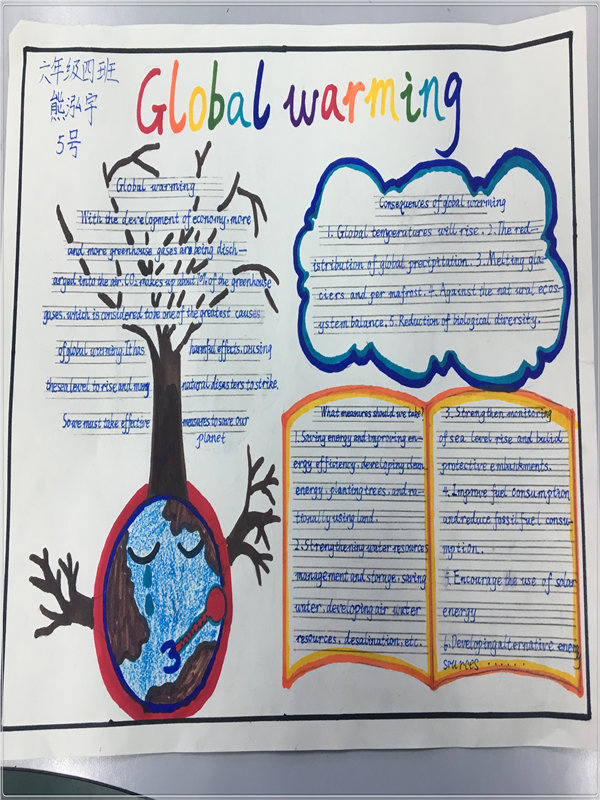 六年级四班
熊泓宇
5号
Global warming
Global warming
With the development of economy, more
and more greenhouse gases are being disch-
arged into the air. CO₂ makes up about 70% of the greenhouse
gases, which is considered to be one of the greatest causes
of global warming. It has harmful effects, causing
the sea level to rise and many natural disasters to strike.
So we must take effective measures to save our
planet
Consequences of global warming
1. Global temperatures will rise. 2. The red-
istribution of global precipitation. 3. Melting gla-
ciers and permafrost. 4. Against the natural ecos-
ystem balance. 5. Reduction of biological diversity.
What measures should we take?
1. Saving energy and improving en-
ergy efficiency, developing clean
energy, planting trees, and ra-
tionally using land.
2. Strengthening water resources
management and storage, saving
water, developing air water
resources, desalination, etc.
3. Strengthen monitoring
of sea level rise and build
protective embankments.
4. Improve fuel consumption
and reduce fossil fuel consu-
mption.
5. Encourage the use of solar
energy
6. Developing alternative energy
sources ......